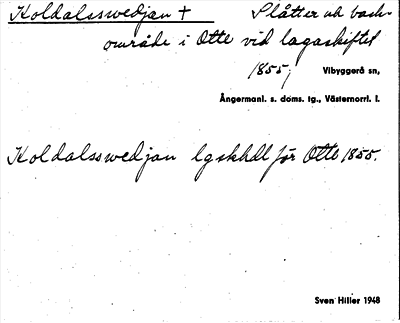 Koldalsswedjan + Slåtter och back-
område i Otte vid lagaskiftet
1855; Vibyggerå sn,
Ångermanl. s. doms. tg., Västernorrl. l.
Koldalsswedjan lgskhdl för Otte 1855.
Sven Hiller 1948